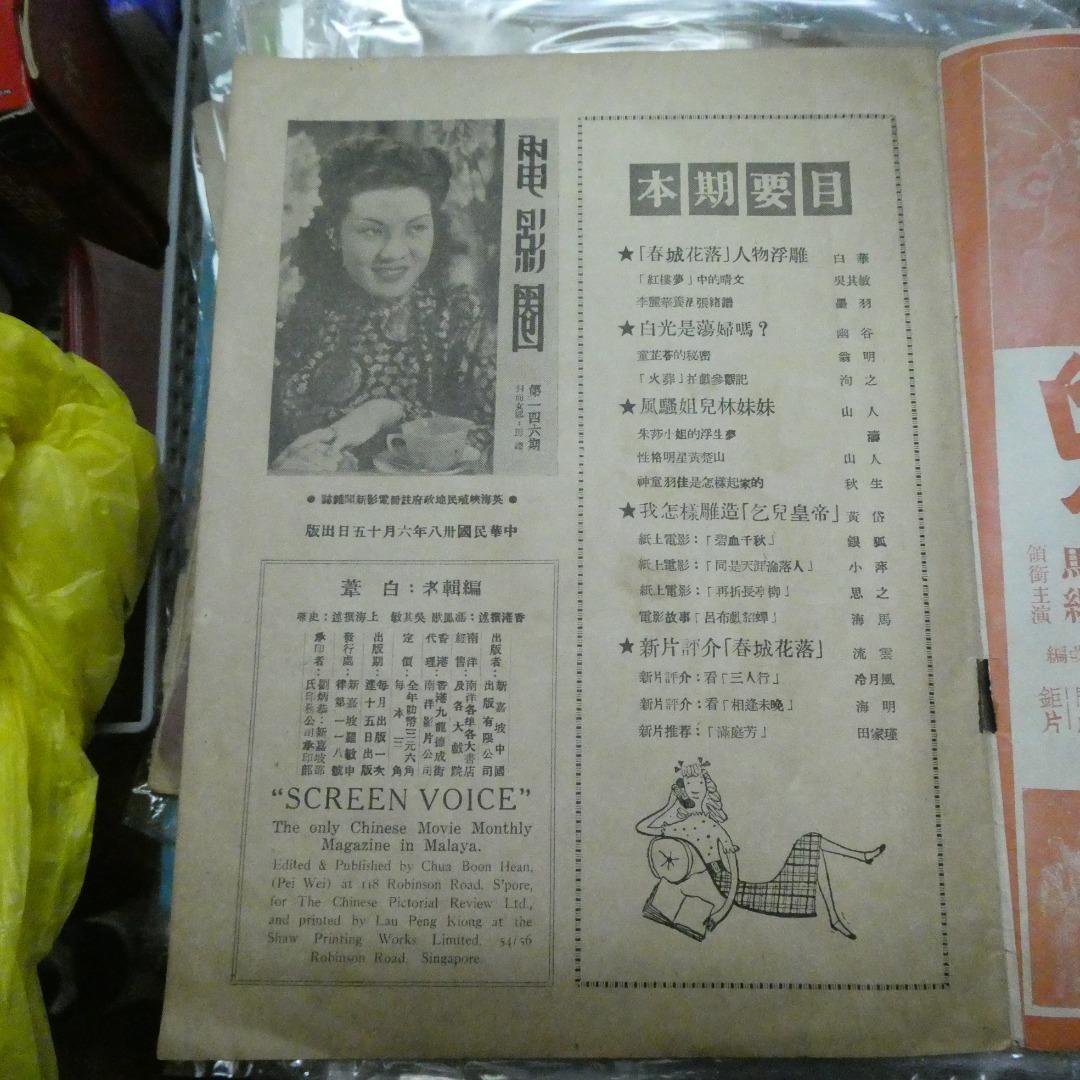 電影圈
第一四六期
封面女郎・
● 英海峽殖民地政府註冊電影新聞雜誌 ●
版出日五十月六年八卅國民華中
葦白:者輯編
出版者:新嘉坡中國出版有限公司
經售:南洋各埠各大書店及各大戲院
香港代理:香港九龍德成街南洋影片公司
定價:每本三角全年叻幣三元六角
出版期:每月出版一次逢十五日出版
發行處:新嘉坡羅敏申律第一一八號
承印者:劉炳恭・新嘉坡邵氏印務公司承印部
"SCREEN VOICE"
The only Chinese Movie Monthly
Magazine in Malaya.
Edited & Published by Chua Boon Hean,
(Pei Wei) at 118 Robinson Road, S'pore,
for The Chinese Pictorial Review Ltd.,
and printed by Lau Peng Kiong at the
Shaw Printing Works Limited, 54/56
Robinson Road, Singapore.
本期要目
★「春城花落」人物浮雕 白華
「紅樓夢」中的晴文 吳其敏
李麗華 張緒譜 墨羽
★白光是蕩婦嗎? 幽谷
童芷苓的秘密 翁明
「火葬」拍戲參觀記 洵之
★風騷姐兒林妹妹 山人
朱莎小姐的浮生夢 濤
性格明星黃楚山 山人
神童羽佳是怎樣起家的 秋生
★我怎樣雕造「乞兒皇帝」 黃岱
紙上電影:「碧血千秋」 銀狐
紙上電影:「同是天涯淪落人」 小萍
紙上電影:「再折長亭柳」 思之
電影故事「呂布戲貂蟬」 海馬
★新片評介「春城花落」 流雲
新片評介:看「三人行」 冷月風
新片評介:看「相逢未晚」 海明
新片推荐:「滿庭芳」 田家瑾
領銜主演
編
鉅片